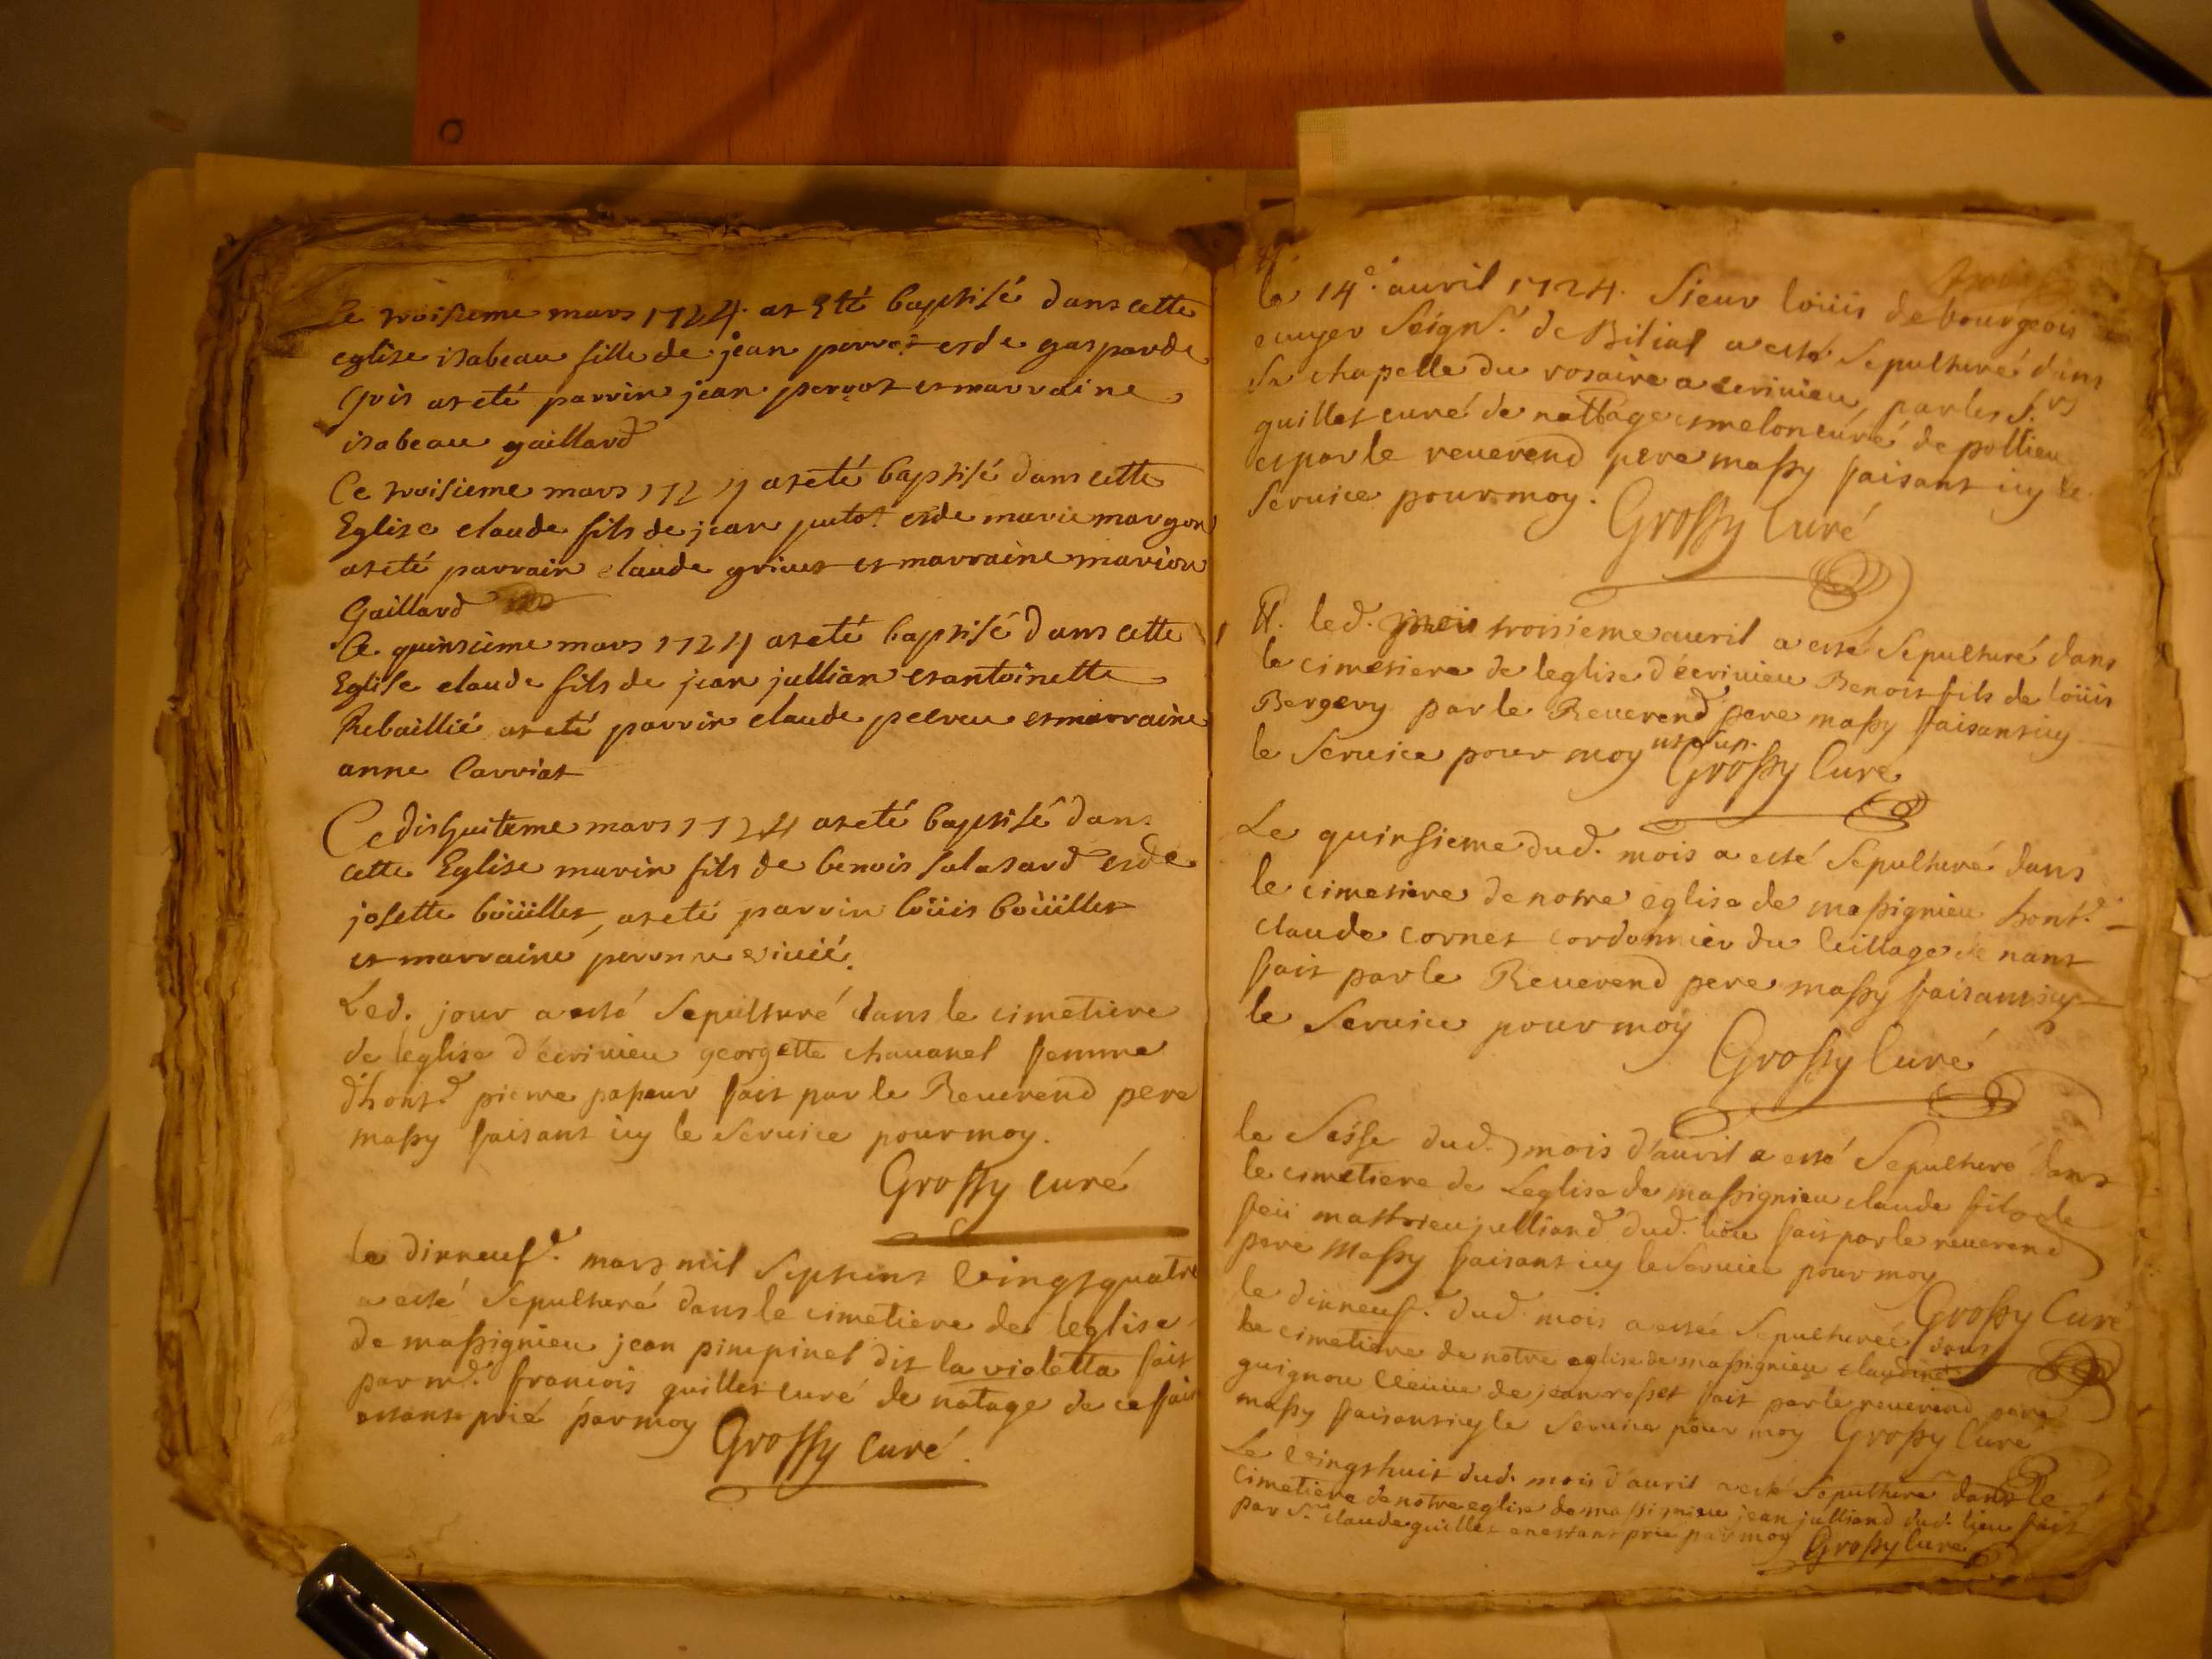 Ce troisieme mars 1724 at esté baptisé dans cette
eglise isabeau fille de jean perrot et de gasparde
gris at eté parrin jean perrot et marraine
isabeau gaillard
Ce troisieme mars 1724 at eté baptisé dans cette
Eglise claude fils de jean et de marie margon
at eté parrain claude et marraine marion
Gaillard
Ce quinsieme mars 1724 at eté baptisé dans cette
Eglise claude fils de jean jullian et antoinette
Rebaillié at eté parrin claude et marraine
anne Carriat
Ce dishuiteme mars 1724 at eté baptisé dans
cette Eglise marin fils de benois salasard et de
josette boüillet, at eté parrin loüis boüillet
et marraine
Led. jour a esté Sepulturé dans le cimetiere
de leglise d'ecrivieu georgette chavanel femme
d'hont.^e pierre fait par le Reverend pere
massy faisant icy le service pour moy.
Grossy curé
le dixneuf.^e mars mil Septcent vingtquatre
a esté Sepulturé dans le cimetiere de leglise
de massignieu jean pimpinel dit la violetta fait
par m.^e francois guillet curé de natage de ce fair
estant prié par moy Grossy curé.
le 14.^e avril 1724. Sieur loüis debourgeois
ecuyer Seign.^r de Bilial a esté Sepulturé dans
Sa chapelle du rosaire a ecrivieu, par les S.^rs
guillet curé de nattage et melon curé de pollieu
et par le reverend pere massy faisant icy le
Service pour moy. Grossy Curé
It. led. mois troisieme avril a esté Sepulturé dans
le cimetiere de leglise d'ecrivieu Benoit fils de loüis
Bergery par le Reverend pere massy faisant icy
le Service pour moy ut sup. Grossy Curé
Le quinsieme dud. mois a esté Sepulturé dans
le cimetiere de notre eglise de massignieu hont.^e
claude cornet cordonnier du village de nant
fait par le Reverend pere massy faisant icy
le Service pour moy
Grossy Curé
le Sesse dud. mois d'avril a esté Sepulturé dans
le cimetiere de Leglise de massignieu claude fils de
feü matthieu julliand dud. lieu fait par le reverend
pere Massy faisant icy le Service pour moy
Grossy Curé
le dixneuf.^e dud. mois a estée Sepulturée dans
le cimetiere de notre eglise de massignieu claudine
guignon veuve de jean rosset fait par le reverend pere
massy faisant icy le Service pour moy Grossy Curé
Le vingthuit dud. mois d'avril a esté Sepulturé dans le
cimetiere de notre eglise de massignieu jean julliand dud. lieu fait
par S.^r claude guillet en estant prié par moy Grossy Curé